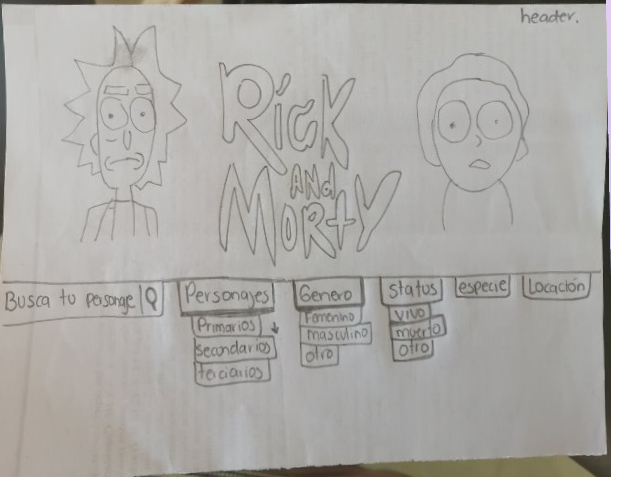 header.
Rick
And
Morty
Busca tu personaje
Personajes
Primarios
secundarios
terciarios
Genero
Femenino
masculino
otro
Status
vivo
muerto
otro
especie
Locación